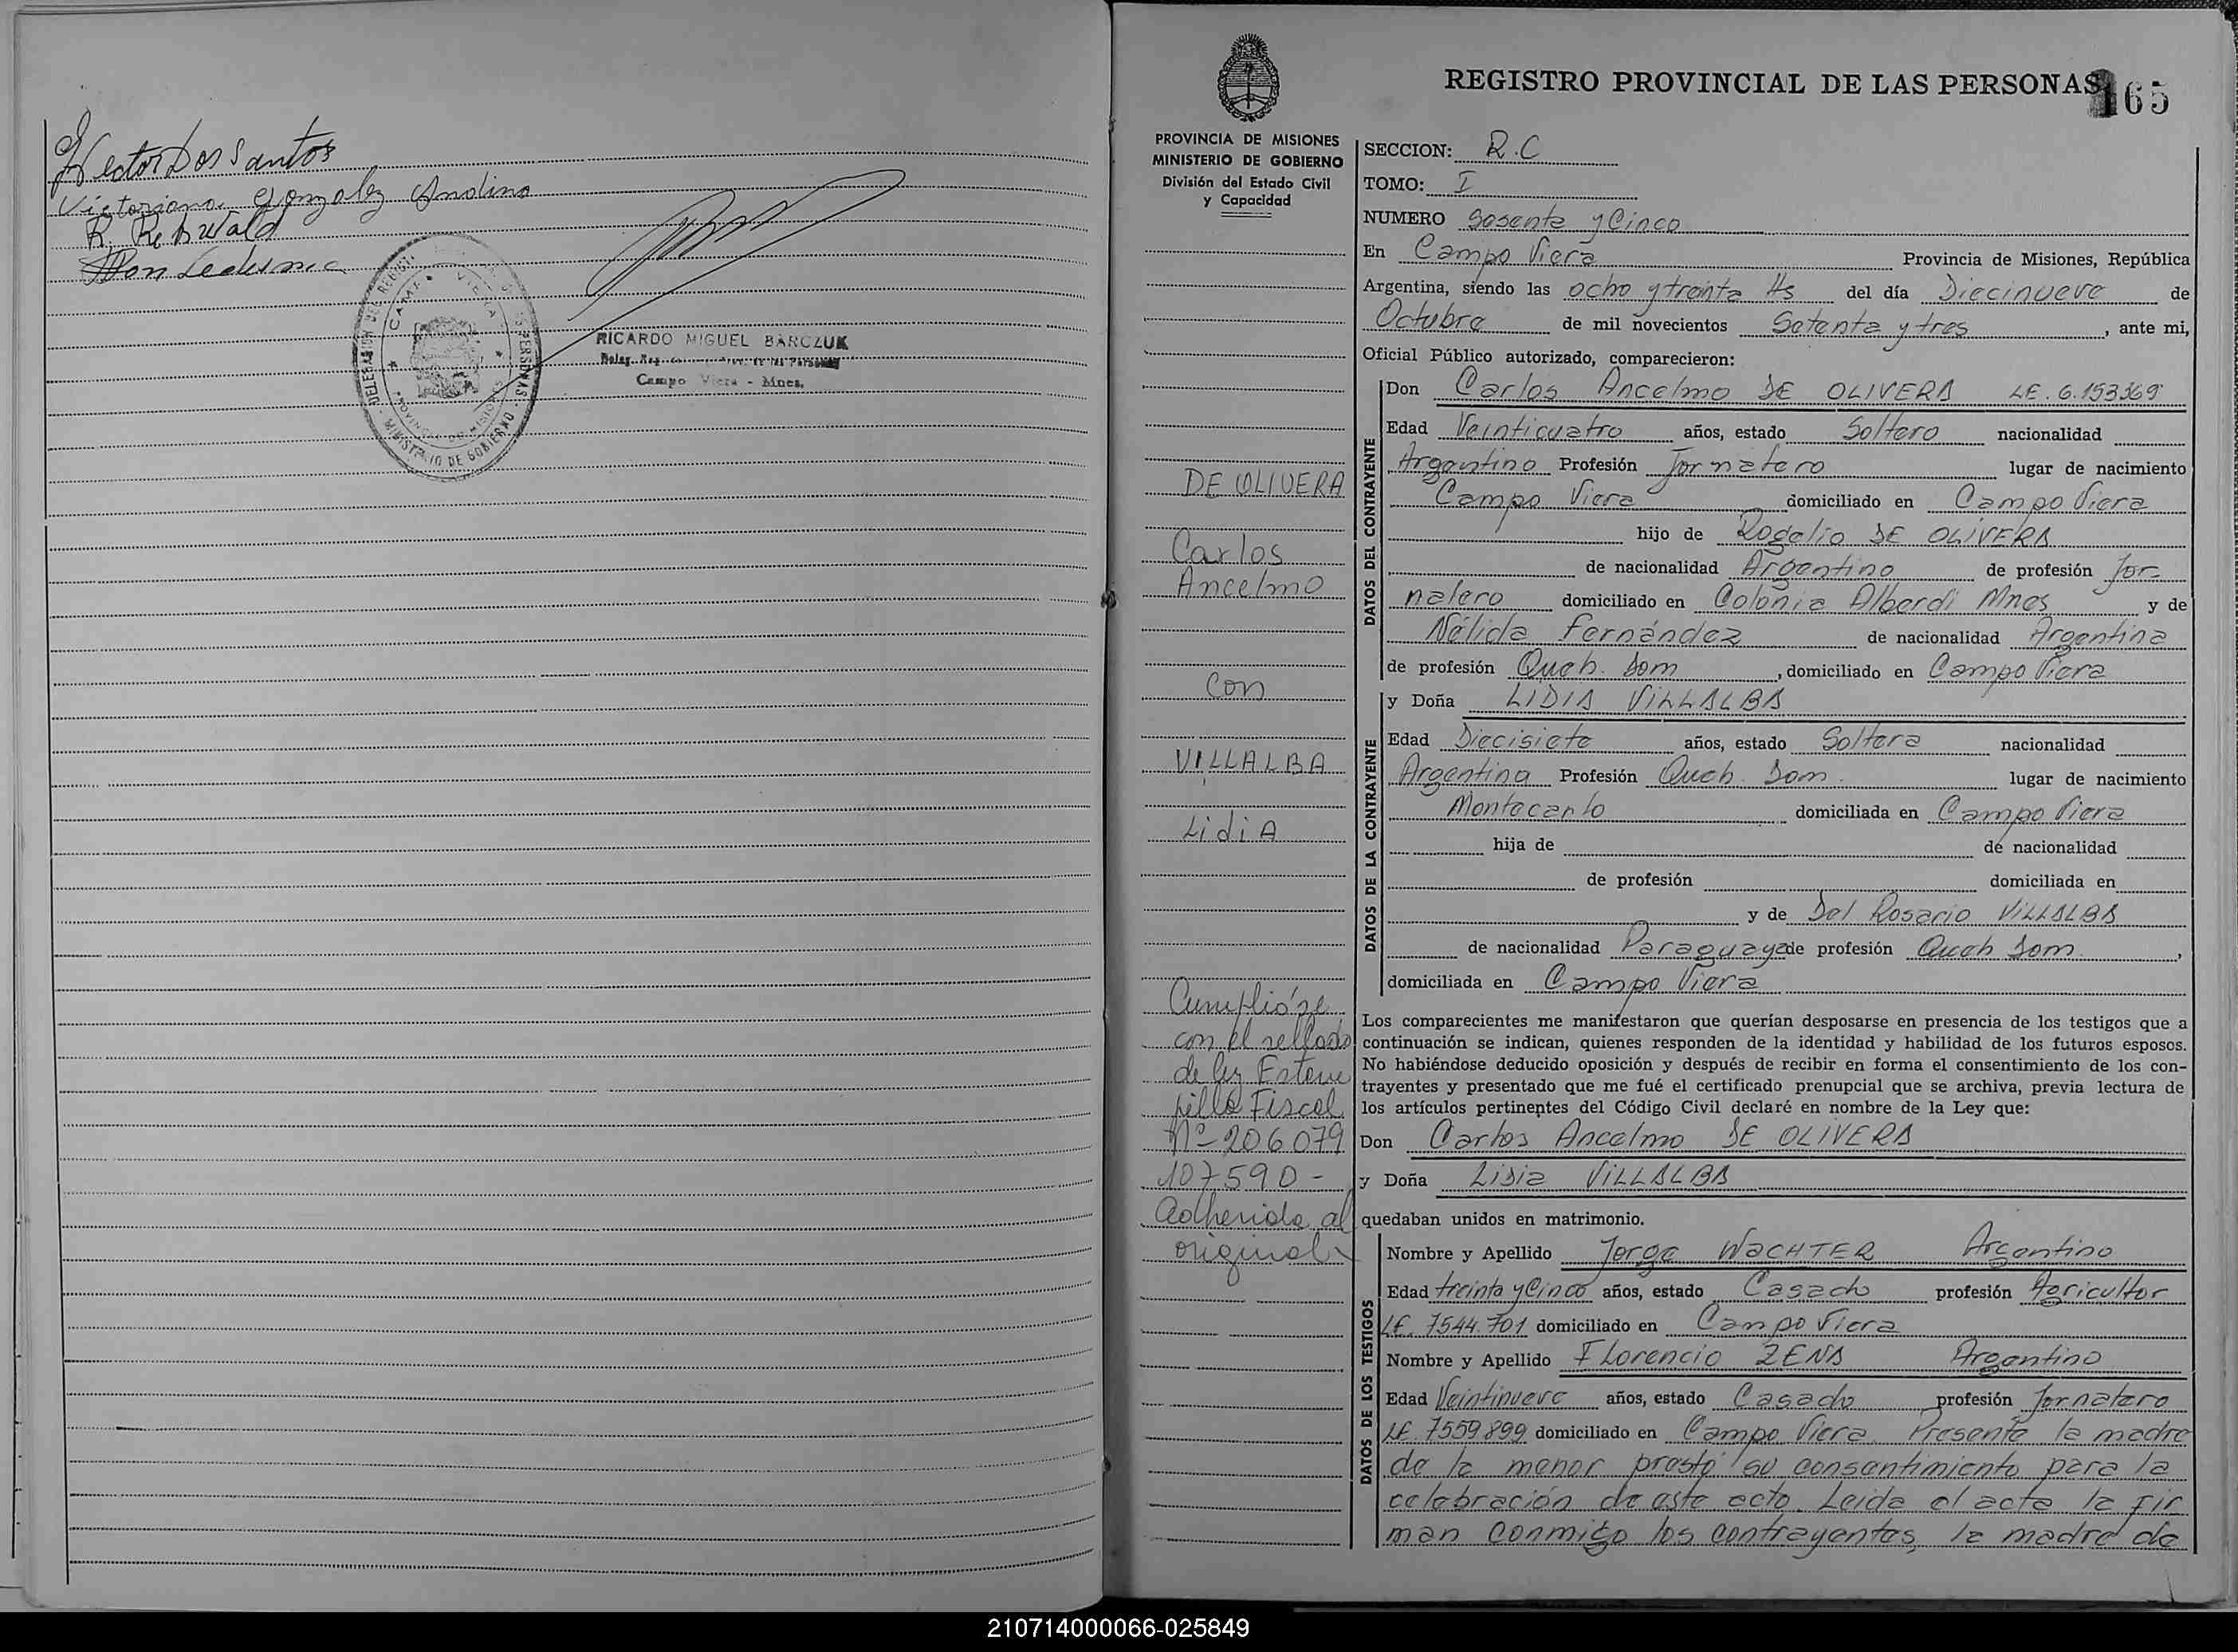 Hector Dos Santos
Victoriana Gonzalez Andino
R. Rebwald
Ledesma
DELEGACION DEL REGISTRO DE LAS PERSONAS
CAMPO VIERA
PROVINCIA DE MISIONES
MINISTERIO DE GOBIERNO
RICARDO MIGUEL BARCZUK
Campo Viera - Mnes.
REGISTRO PROVINCIAL DE LAS PERSONAS
165
PROVINCIA DE MISIONES
MINISTERIO DE GOBIERNO
División del Estado Civil
y Capacidad
DE OLIVERA
Carlos
Ancelmo
con
VILLALBA
LidiA
Cumplióse
con el sellado
de ley Estam
pilla Fiscal
Nº 206079
107590-
Adherida al
original
SECCION: R.C
TOMO: I
NUMERO Sesenta y Cinco
En Campo Viera Provincia de Misiones, República
Argentina, siendo las ocho y treinta Hs del día Diecinueve de
Octubre de mil novecientos Setenta y tres, ante mi,
Oficial Público autorizado, comparecieron:
DATOS DEL CONTRAYENTE
Don Carlos Ancelmo DE OLIVERA LE. 6.153369
Edad Veinticuatro años, estado Soltero nacionalidad
Argentino Profesión Jornalero lugar de nacimiento
Campo Viera domiciliado en Campo Viera
hijo de Rogelio DE OLIVERA
de nacionalidad Argentino de profesión Jor-
nalero domiciliado en Colonia Alberdi Mnes y de
Nélida Fernández de nacionalidad Argentina
de profesión Queh. Dom, domiciliado en Campo Viera
DATOS DE LA CONTRAYENTE
y Doña LIDIA VILLALBA
Edad Diecisiete años, estado Soltera nacionalidad
Argentina Profesión Queh. Dom. lugar de nacimiento
Montecarlo domiciliada en Campo Viera
hija de de nacionalidad
de profesión domiciliada en
y de Del Rosario VILLALBA
de nacionalidad Paraguaya de profesión Queh Dom,
domiciliada en Campo Viera
Los comparecientes me manifestaron que querían desposarse en presencia de los testigos que a
continuación se indican, quienes responden de la identidad y habilidad de los futuros esposos.
No habiéndose deducido oposición y después de recibir en forma el consentimiento de los con-
trayentes y presentado que me fué el certificado prenupcial que se archiva, previa lectura de
los artículos pertinentes del Código Civil declaré en nombre de la Ley que:
Don Carlos Ancelmo DE OLIVERA
y Doña Lidia VILLALBA
quedaban unidos en matrimonio.
DATOS DE LOS TESTIGOS
Nombre y Apellido Jorge WACHTER Argentino
Edad treinta y Cinco años, estado Casado profesión Agricultor
LE. 7544.701 domiciliado en Campo Viera
Nombre y Apellido Florencio ZENA Argentino
Edad Veintinueve años, estado Casado profesión Jornalero
LE. 7559899 domiciliado en Campo Viera. Presente la madre
de la menor prestó su consentimiento para la
celebración de este acto. Leida el acta la fir
man conmigo los contrayentes, la madre de
210714000066-025849